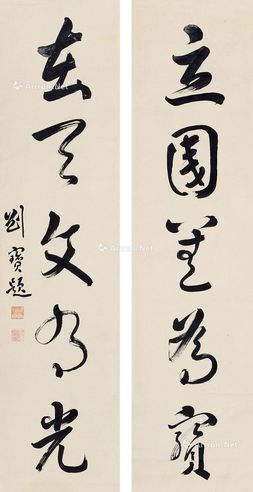 立國善為寶
在天文光
劉寶題
Artron.Net